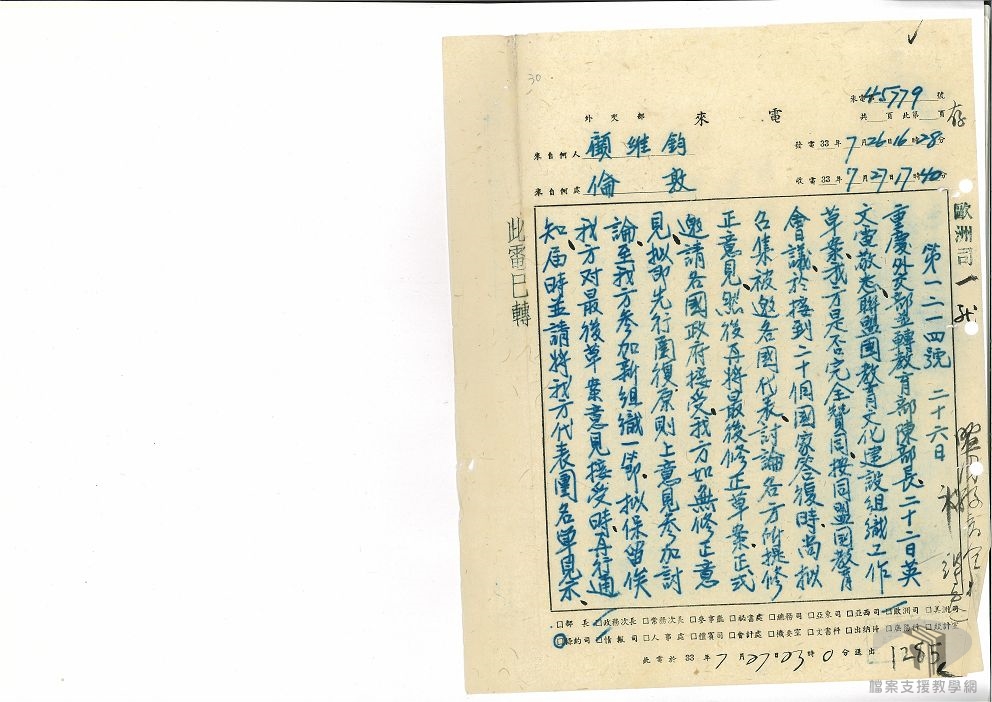 30
來電 45779 號
共 頁 此第 頁
存
外交部 來電
發電 33 年 7 月 26 日 16 時 28 分
來自何人 顧維鈞
收電 33 年 7 月 27 日 17 時 40 分
來自何處 倫敦
歐洲司
第一二一四號 二十六日
重慶外交部並轉教育部陳部長、二十二日英
文電敬悉聯盟國教育文化建設組織工作
草案、我方是否完全贊同、按同盟國教育
會議、於接到二十個國家答復時、尚擬
召集被邀各國代表、討論各方所擬修
正意見、然後再將最後修正草案、正式
邀請各國政府接受、我方如無修正意
見、擬即先行圍復原則上意見參加討
論、至我方參加新組織一節、擬保留俟
我方对最後草案意見接受時、再行通
知屆時並請將我方代表團名單見示、
此電已轉
□部長 □政務次長 □常務次長 □參事廳 □祕書處 □總務司 □亞東司 □亞西司 □歐洲司 □美洲司
□條約司 □情報司 □人事處 □禮賓司 □會計處 □機要室 □文書科 □出納科 □統計室
此電於 33 年 7 月 27 日 23 時 0 分送出
1285
檔案支援教學網